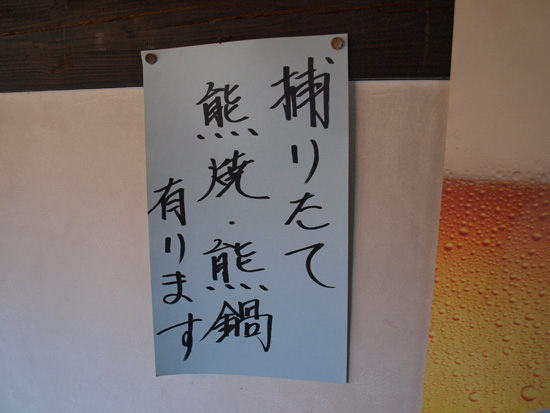 捕りたて
熊焼・熊鍋
有ります